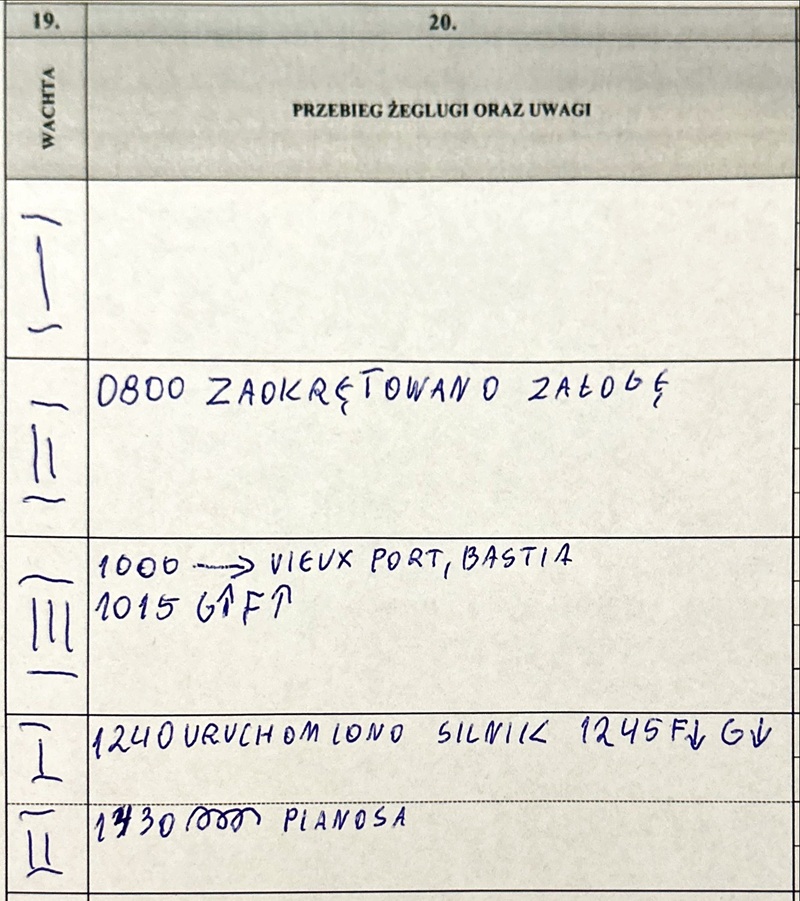 19.
20.
WACHTA
PRZEBIEG ŻEGLUGI ORAZ UWAGI
I
II
0800 ZAOKRĘTOWANO ZAŁOGĘ
III
1000 → VIEUX PORT, BASTIA
1015 G↑ F↑
I
1240 URUCHOMIONO SILNIK 1245 F↓ G↓
II
PIANOSA